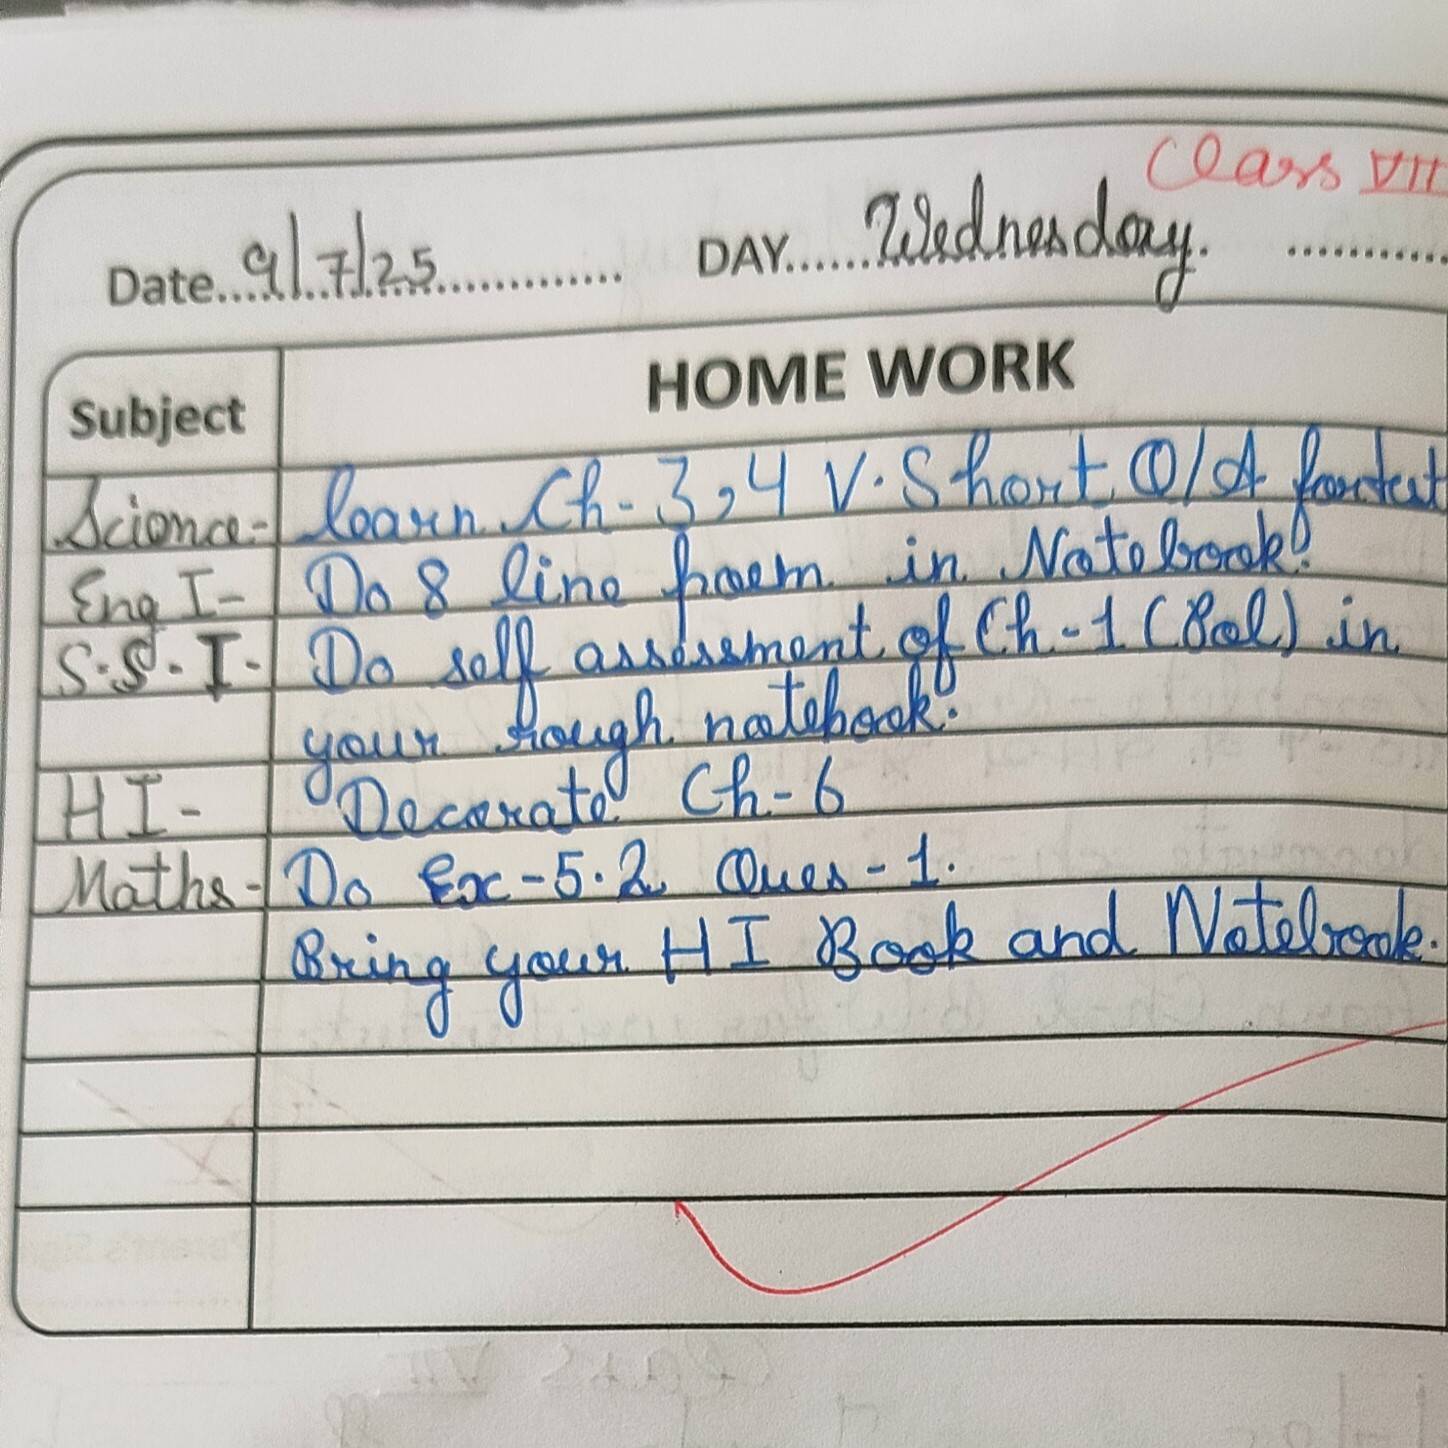 Class VII
Date...9/7/25............ DAY......Wednesday. ............
Subject HOME WORK
Science- learn Ch-3,4 V.Short Q/A for test
Eng I- Do 8 line poem in Notebook.
S.S.I- Do self assessment of Ch-1 (Pol) in
your rough notebook.
HI- Decorate Ch-6
Maths- Do Ex-5.2 Ques-1.
Bring your HI Book and Notebook.